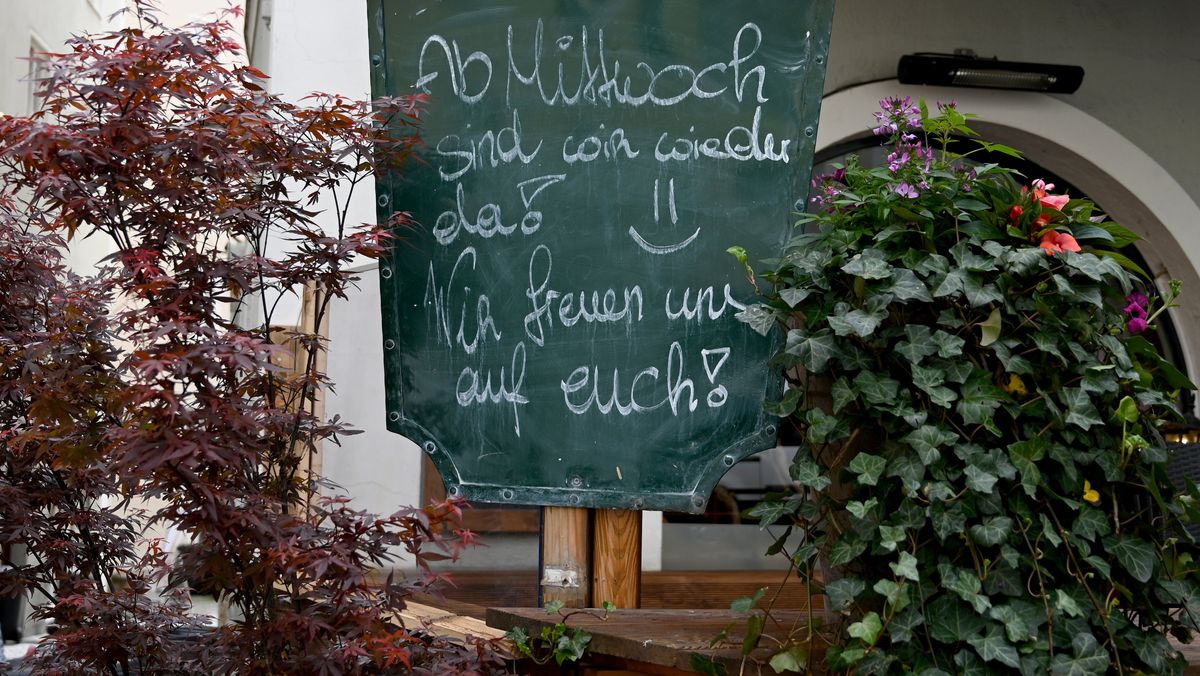 Ab Mittwoch
sind wir wieder
da!
Wir freuen uns
auf euch!